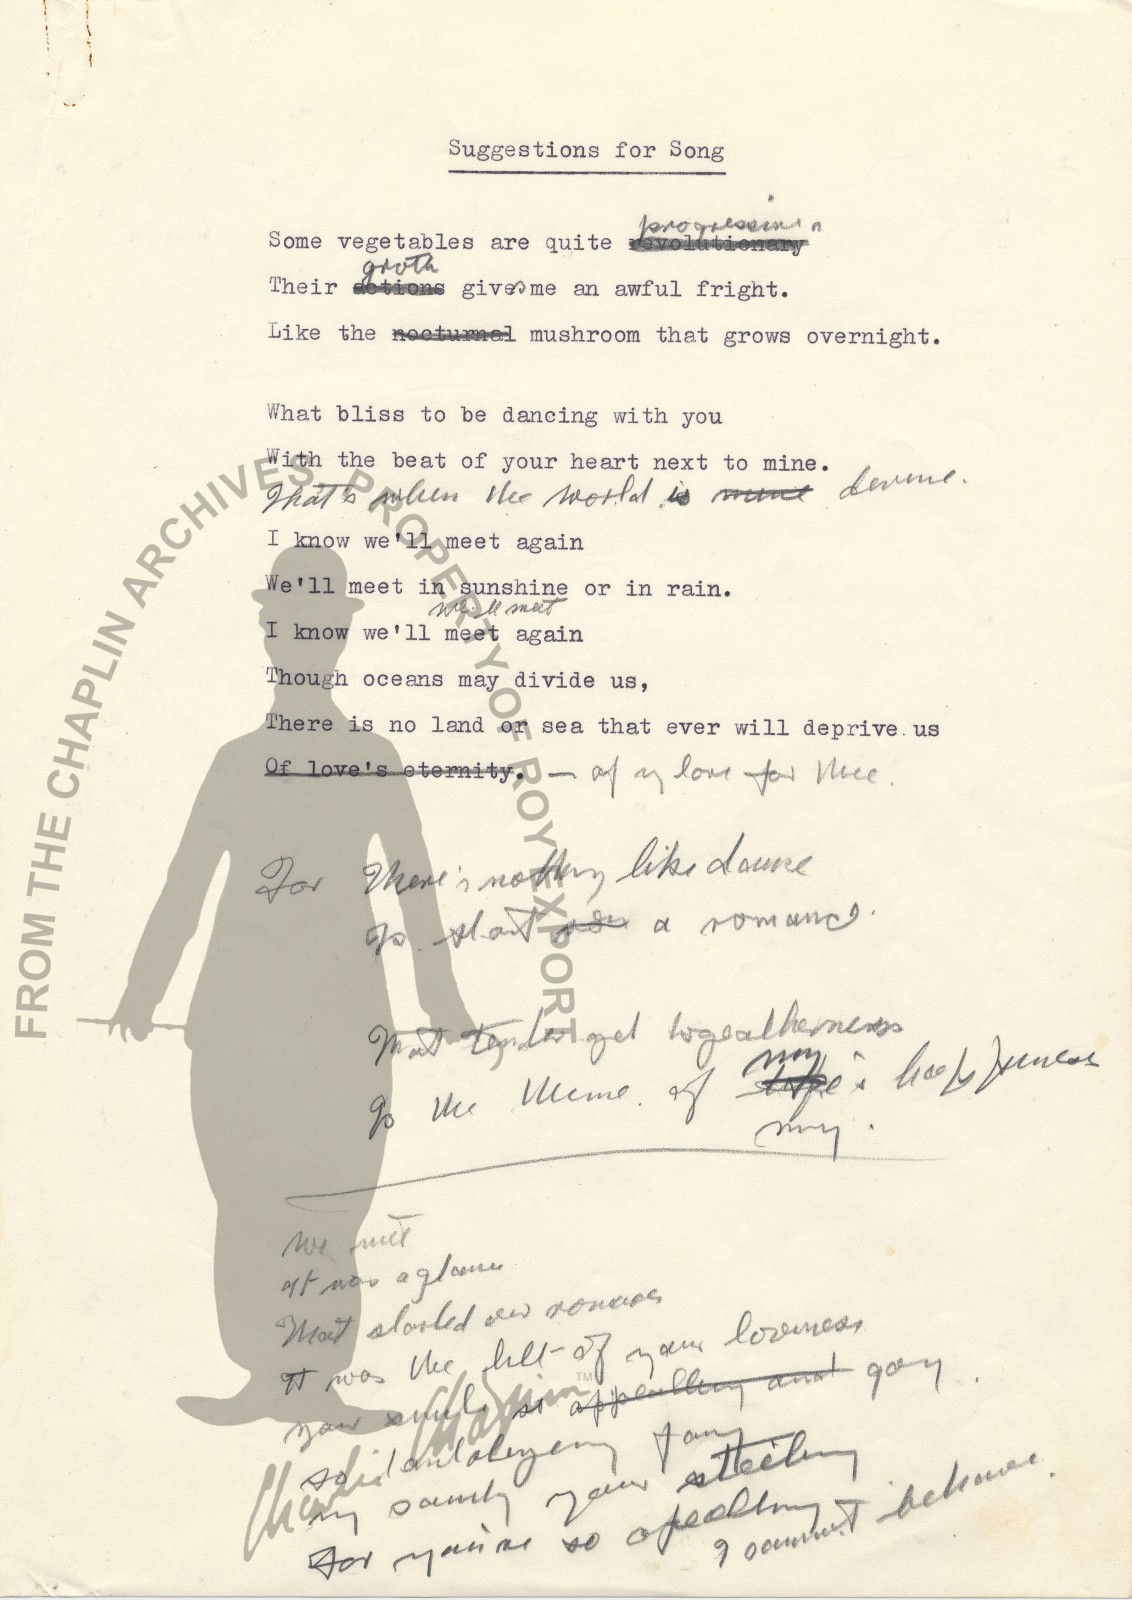 Suggestions for Song
progressive
Some vegetables are quite revolutionary
groth
Their actions gives me an awful fright.
Like the nocturnal mushroom that grows overnight.
What bliss to be dancing with you
With the beat of your heart next to mine.
That's when the world is mine devine.
I know we'll meet again
We'll meet in sunshine or in rain.
we'll meet
I know we'll meet again
Though oceans may divide us,
There is no land or sea that ever will deprive us
Of love's eternity. — of my love for thee.
For there's nothing like dance
To start a romance.
That tender yet togeatherness
my
To the theme of life's happyness
my.
We met
It was a glance
That started our romance
It was the hilt of your loveness
your smile so appealling and gay.
so
my your
for you're so apealling
I cannot behave.
FROM THE CHAPLIN ARCHIVES PROPERTY OF ROY EXPORT
Charlie Chaplin TM